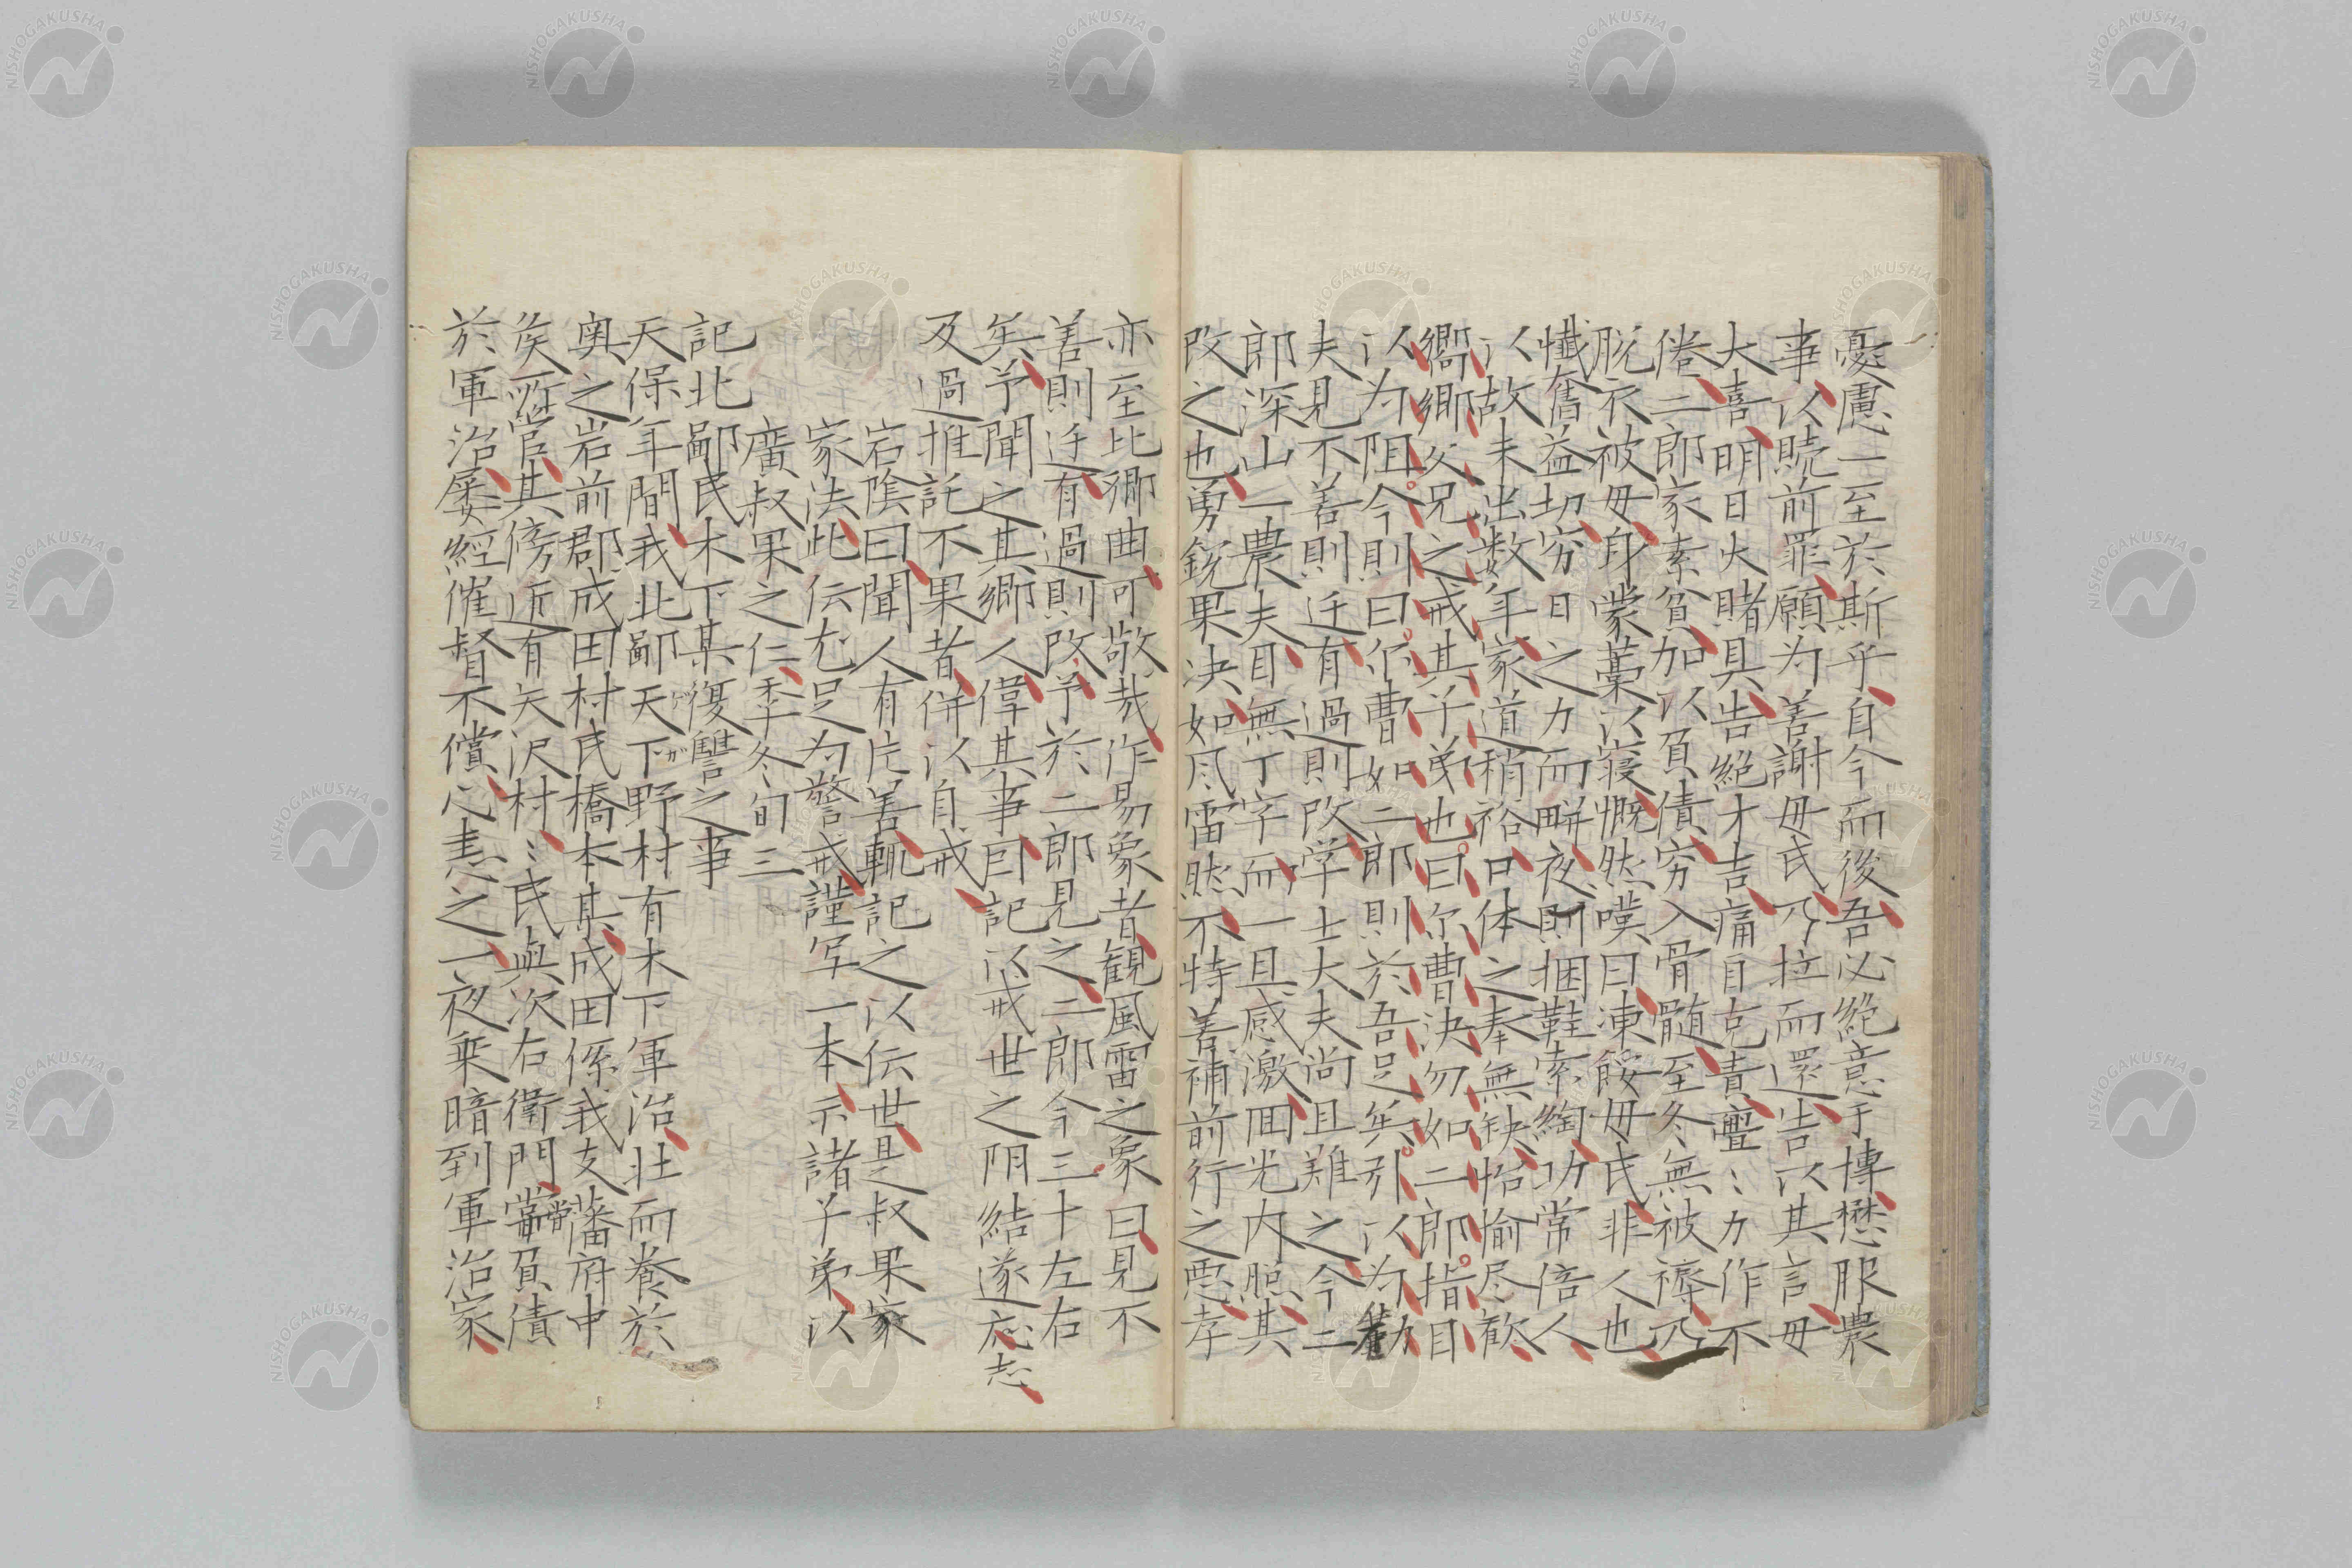 憂慮一至於斯乎自今而後吾必絶意于博懋服農
事以贖前罪願为善謝毋氏乃拉而還告以其言毋
大喜明日火賭具告絶才吉痛自克責亹〻力作不
倦二郎家素貧加以負債穷入骨髄至冬無被褥乃
脱衣被毋身蒙藁以寝慨然嘆曰凍餒毋氏非人也
懺奮益切穷日之力而畊夜則捆鞋索綯功常倍人
以故未出数年家道稍裕口体之奉無缺怡愉尽歓
嚮郷父兄之戒其子弟也曰尓曹決勿如二郎指目
以为阻今則曰尓曹如二郎則於吾足矣引以为勧
夫見不善則迁有過則改学士大夫尚且難之今二
郎深山一農夫目無丁字而一旦感激囬光内照其
改之也勇鋭果決如风雷然不特善補前行之悪孝
亦至比郷曲可敬哉作易象者観風雷之象曰見不
善則迁有過則改予於二郎見之二郎今三十左右
矣予聞之其郷人偉其事囙記以戒世之阴結遂庇志
及過推託不果者併以自戒
宕陰曰聞人有片善輒記之以伝世是叔果家
家法此伝尤足为警戒謹写一本示諸子弟以
廣叔果之仁季冬旬三
記北鄙民木下某復讐之事
天保年間我北鄙天下野村有木下軍治壮而養於
奥之岩前郡成田村民橋本某成田係我支藩府中
矦所管其傍近有矢沢村〻民與次右衛門嘗負債
於軍治屡経催督不償心恚之一夜乗暗到軍治家
NISHOGAKUSHA